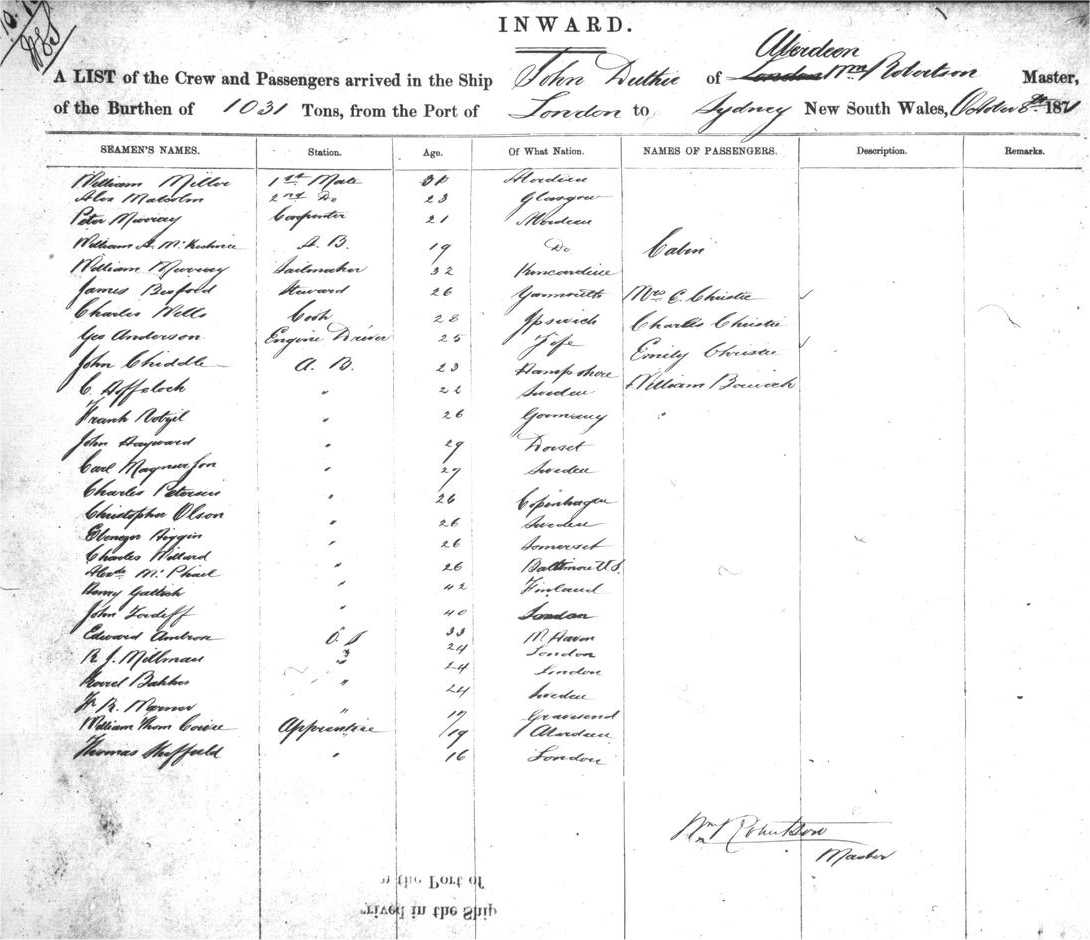 INWARD.
Aberdeen
A LIST of the Crew and Passengers arrived in the Ship John Duthie of London Wm Robertson Master,
of the Burthen of 1031 Tons, from the Port of London to Sydney New South Wales, October 8th 1871
SEAMEN'S NAMES. Station. Age. Of What Nation. NAMES OF PASSENGERS. Description. Remarks.
William 1st Mate Aberdeen
Alex Malcolm 2nd Do 23 Glasgow
Peter Murray Carpenter 21 Aberdeen
William A. A. B. 19 Do Cabin
William Murray Sailmaker 32 Kincardine
James Steward 26 Yarmouth Mrs C. Christie
Charles Wells Cook 28 Ipswich Charles Christie
Geo Anderson Engine Driver 25 Fife Emily Christie
John Chiddle A. B. 23 Hampshire William
C. " 22 Sweden
Frank " 26 Germany
John Hayward " 29 Dorset
Carl Magnusson " 27 Sweden
Charles Petersen " 26 Copenhagen
Christopher Olson " 26 Sweden
Ebenezer " 26 Somerset
Charles Willard " 26 Baltimore U.S.
McPhail " 42 Finland
Henry " 40 London
John 33 M. Haven
Edward Ambrose O. S 24 London
R. J. Millman " 24 London
" 24 Sweden
W. R. " 17 Gravesend
William Thom Apprentice 19 Aberdeen
Thomas Sheffield " 16 London
Wm Robertson
Master
the Port of
rived in the Ship